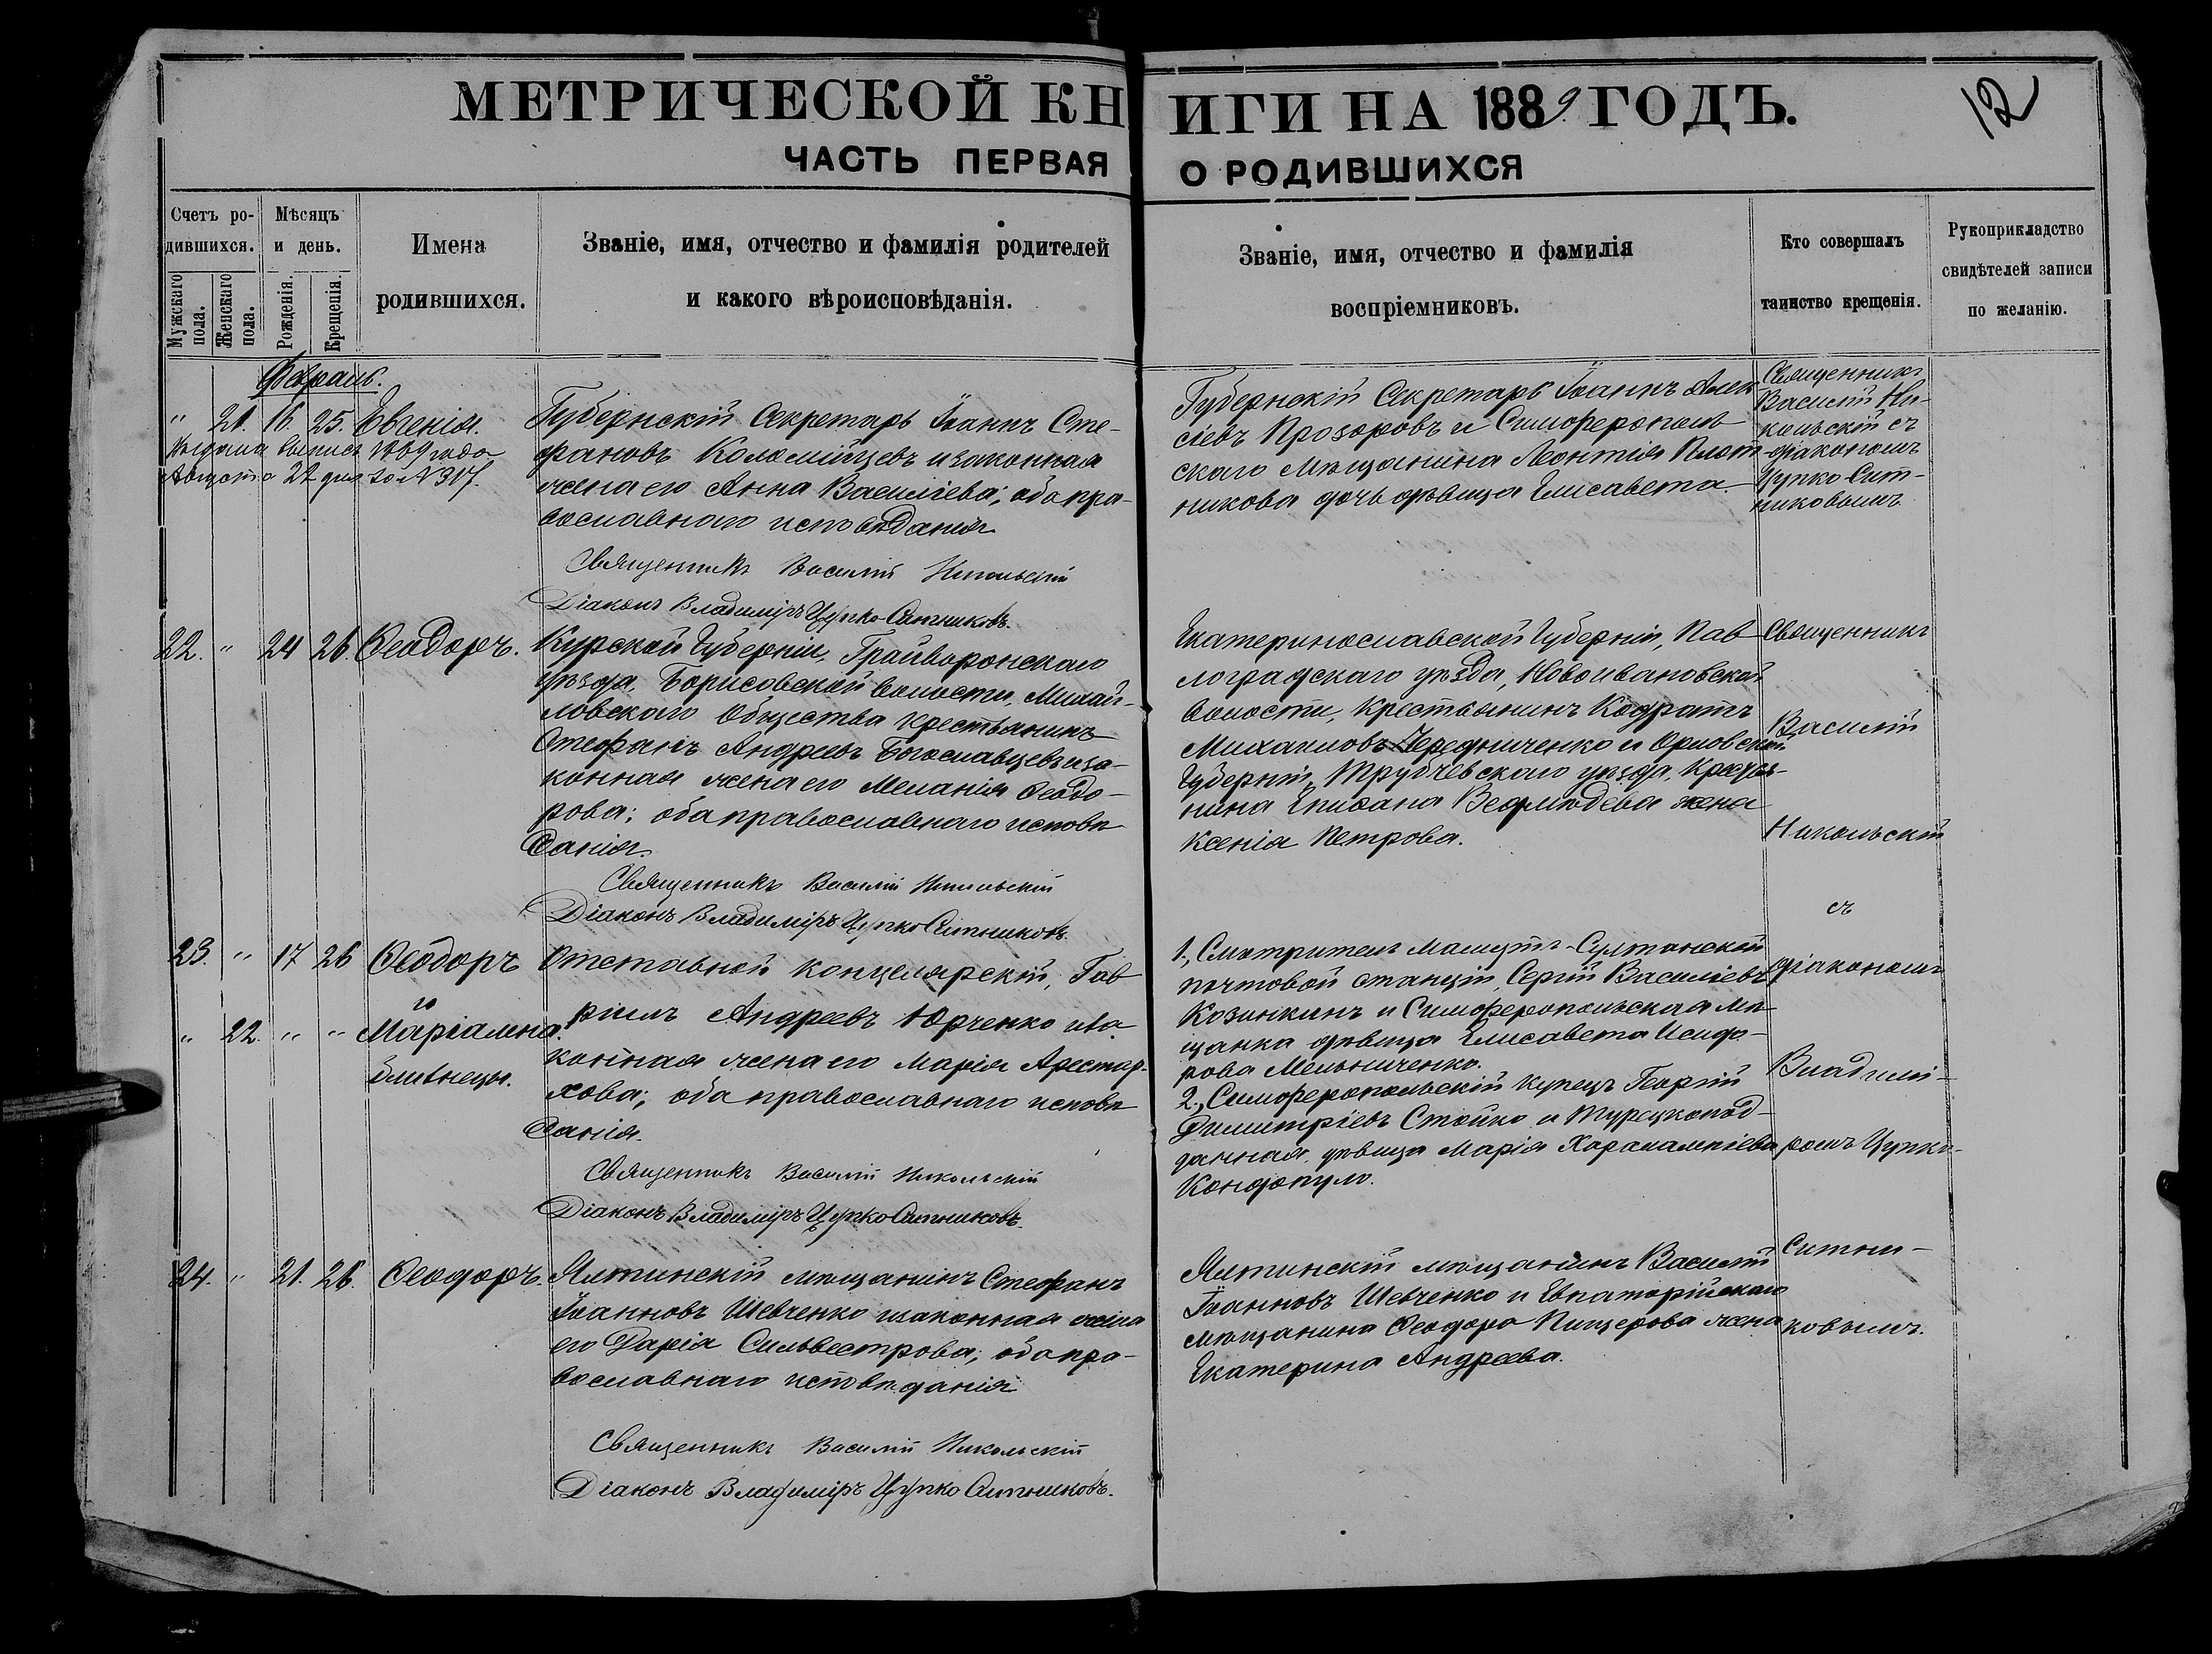 МЕТРИЧЕСКОЙ КНИГИ НА 1889 ГОДЪ.
12
ЧАСТЬ ПЕРВАЯ О РОДИВШИХСЯ
Счетъ ро-
дившихся.
Мужскаго пола.
Женскаго пола.
Мѣсяцъ
и день.
Рожденія.
Крещенія.
Имена
родившихся.
Званіе, имя, отчество и фамилія родителей
и какого вѣроисповѣданія.
Званіе, имя, отчество и фамилія
воспріемниковъ.
Кто совершалъ
таинство крещенія.
Рукоприкладство
свидѣтелей записи
по желанію.
Февраль.
" 21. 16. 25. Евгенія.
Выдана выпись 1889 года
Августа 22 дня за № 317.
Губернскій Секретарь Іоаннъ Сте-
фановъ Коломійцевъ и законная
жена его Анна Василіева; оба пра-
вославнаго исповѣданія
Священникъ Василій Никольскій
Діаконъ Владиміръ Цупко Ситниковъ.
Губернскій Секретарь Іоаннъ Алек
сіевъ Прозоровъ и Симферополь
скаго мѣщанина Леонтія Плот-
никова дочь дѣвица Елисавета.
Священникъ
Василій Ни-
кольскій съ
діакономъ
Цупко-Сит-
никовымъ.
22. " 24 26. Ѳеодоръ.
Курской Губерніи, Грайворонскаго
уѣзда, Борисовской волости, Михай-
ловскаго Общества крестьянинъ
Стефанъ Андреевъ Богославцевъ и за-
конная жена его Меланія Ѳеодо-
рова; оба православнаго исповѣ
данія.
Священникъ Василій Никольскій
Діаконъ Владиміръ Цупко Ситниковъ.
Екатеринославской Губерніи, Пав
лоградскаго уѣзда, Новоивановской
волости, крестьянинъ Кодратъ
Михаиловъ Чередниченко и Орловской
Губерніи, Трубчевскаго уѣзда, кресть-
нина Ведмѣдева жена
Ксенія Петрова.
Священникъ
Василій
Никольскій
съ
діакономъ
Владимі-
ромъ Цупко-
Ситни-
ковымъ.
23. " 17 26 Ѳеодоръ
и
" 22. " " Маріамна.
близнецы.
Отставной канцелярскій, Гав
ріилъ Андреевъ Юрченко и за
конная жена его Марія Аристар-
хова; оба православнаго исповѣ
данія.
Священникъ Василій Никольскій
Діаконъ Владиміръ Цупко Ситниковъ.
1., Смотритель Мамутъ-Султанской
почтовой станціи, Сергій Василіевъ
Козинкинъ и Симферопольская мѣ
щанка дѣвица Елисавета Исидо-
рова Мельниченко.
2., Симферопольскій купецъ Георгій
Димитріевъ Стойко и Турецкопод-
данная, дѣвица Марія Харалампіева
Кондопуло.
24. " 21. 26. Ѳеодоръ.
Ялтинскій мѣщанинъ Стефанъ
Іоанновъ Шевченко и законная жена
его Дарія Сильвестрова; оба пра-
вославнаго исповѣданія
Священникъ Василій Никольскій
Діаконъ Владиміръ Цупко Ситниковъ.
Ялтинскій мѣщанинъ Василій
Іоанновъ Шевченко и Евпаторійскаго
мѣщанина Ѳеодора Пищерова жена
Екатерина Андреева.